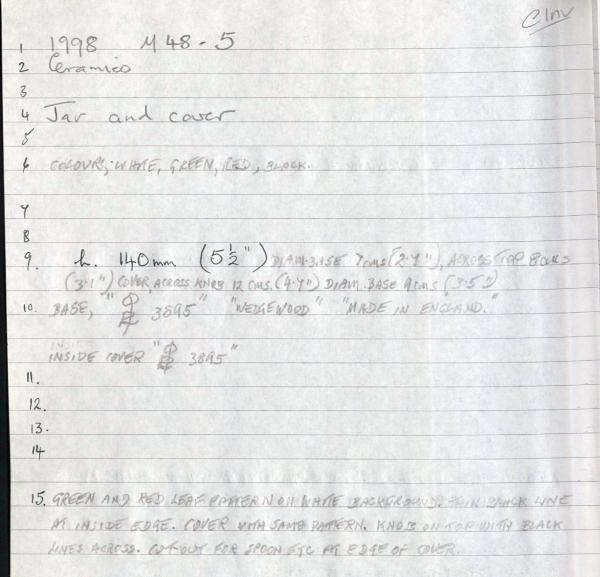 C Inv
1 1998 M 48 - 5
2 Ceramics
3
4 Jar and cover
5
6 COLOURS, WHITE, GREEN, RED, BLACK.
7
8
9. h. 140mm (5½") DIAM. BASE 7cms (2.7"), ACROSS TOP 8cms
(3.1") COVER, ACROSS KNOB 12 cms. (4.7") DIAM. BASE 9cms (3.5")
10. BASE, " 3895" "WEDGEWOOD" "MADE IN ENGLAND."
INSIDE COVER " 3895"
11.
12.
13.
14
15. GREEN AND RED LEAF PATTERN ON WHITE BACKGROUND. THIN BLACK LINE
AT INSIDE EDGE. COVER WITH SAME PATTERN. KNOB ON TOP WITH BLACK
LINES ACROSS. CUT-OUT FOR SPOON ETC AT EDGE OF COVER.